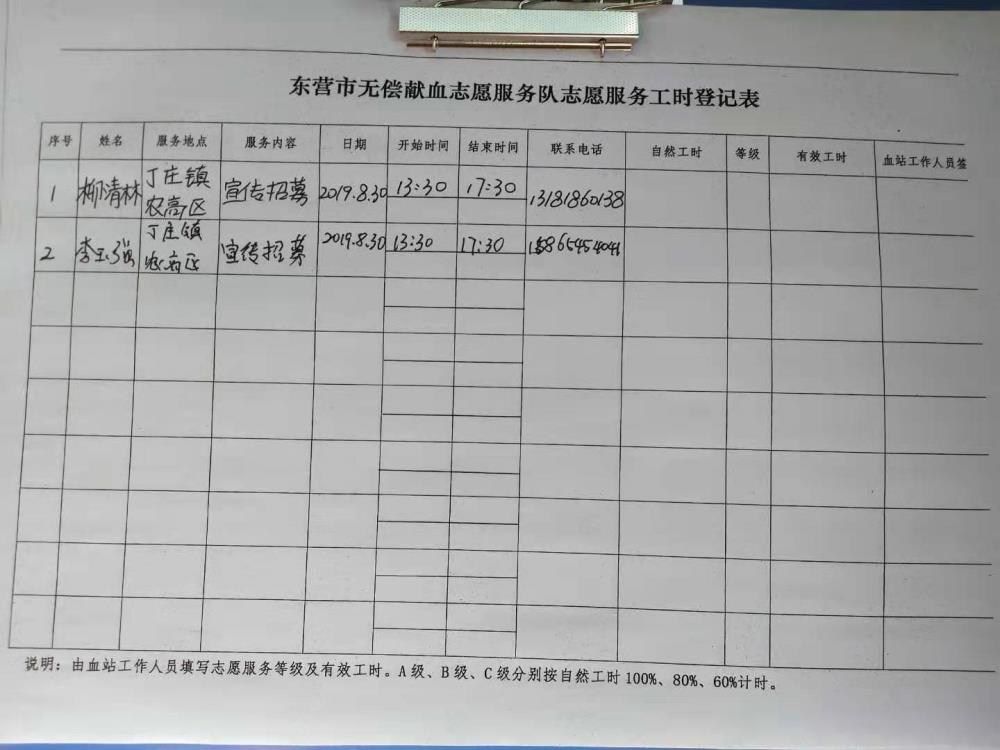 东营市无偿献血志愿服务队志愿服务工时登记表
序号 姓名 服务地点 服务内容 日期 开始时间 结束时间 联系电话 自然工时 等级 有效工时 血站工作人员签
1 柳清林 丁庄镇 宣传招募 2019.8.30 13:30 17:30 13181860138
农高区
2 李玉强 丁庄镇 宣传招募 2019.8.30 13:30 17:30
农高区
说明：由血站工作人员填写志愿服务等级及有效工时。A级、B级、C级分别按自然工时100%、80%、60%计时。